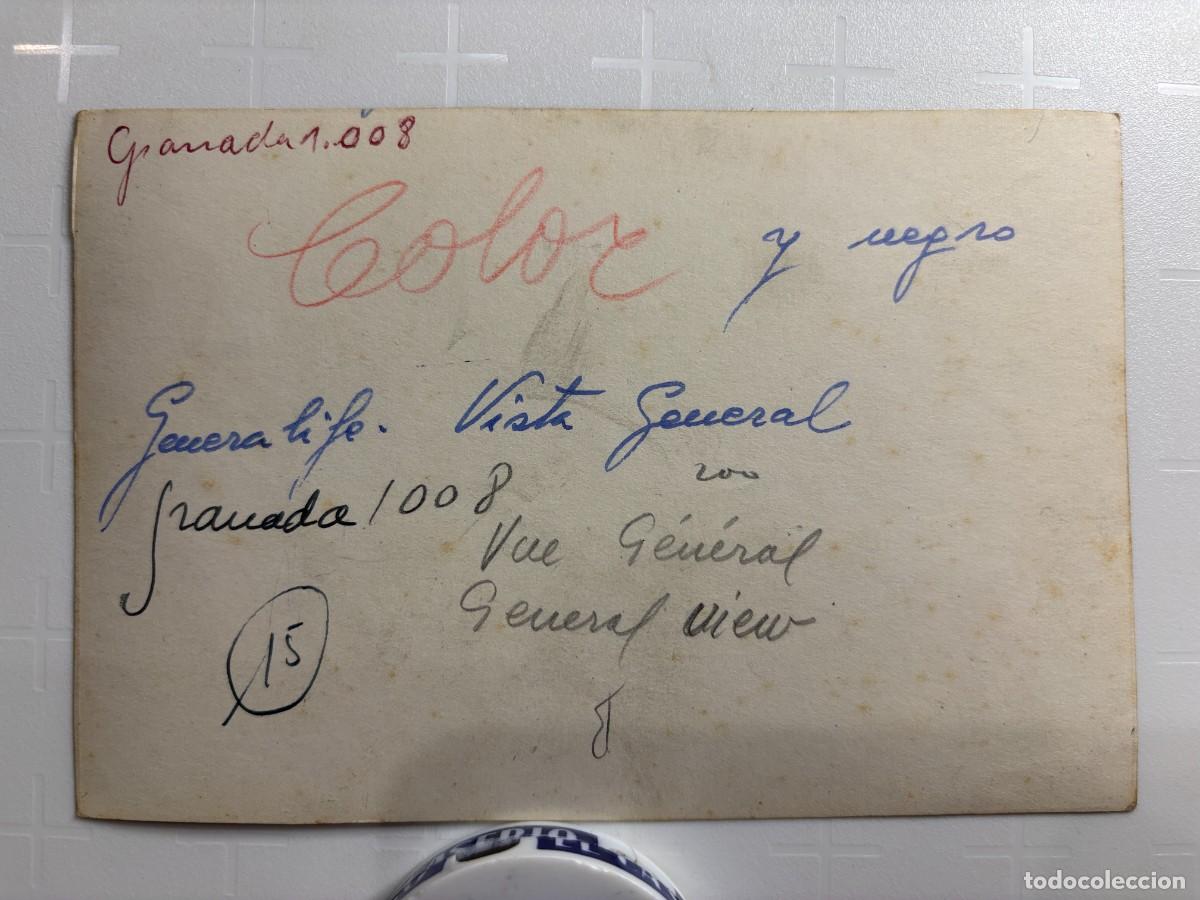 Granada 1.008
Color y negro
Generalife. Vista General
200
Granada 1008
Vue Général
General view
15
todocoleccion